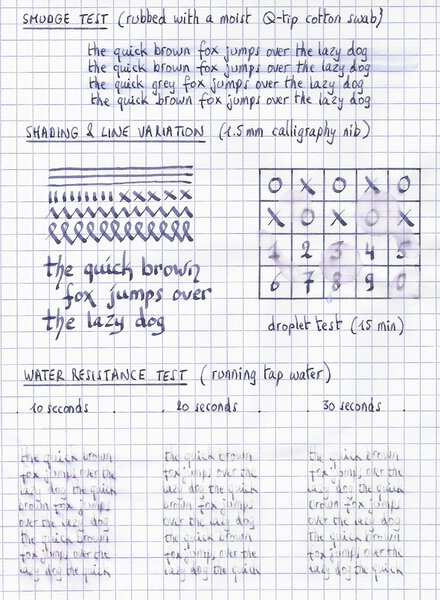 SMUDGE TEST (rubbed with a moist Q-tip cotton swab)
the quick brown fox jumps over the lazy dog
the quick brown fox jumps over the lazy dog
the quick grey fox jumps over the lazy dog
the quick brown fox jumps over the lazy dog
SHADING & LINE VARIATION (1.5mm calligraphy nib)
O X O X O
X O X O X
1 2 3 4 5
6 7 8 9 0
the quick brown
fox jumps over
the lazy dog
droplet test (15 min)
WATER RESISTANCE TEST (running tap water)
10 seconds 20 seconds 30 seconds
the quick brown the quick brown the quick brown
fox jumps over the fox jumps over the fox jumps over the
lazy dog the quick lazy dog the quick lazy dog the quick
brown fox jumps brown fox jumps brown fox jumps
over the lazy dog over the lazy dog over the lazy dog
the quick brown the quick brown the quick brown
fox jumps over the fox jumps over the fox jumps over the
lazy dog the quick lazy dog the quick lazy dog the quick